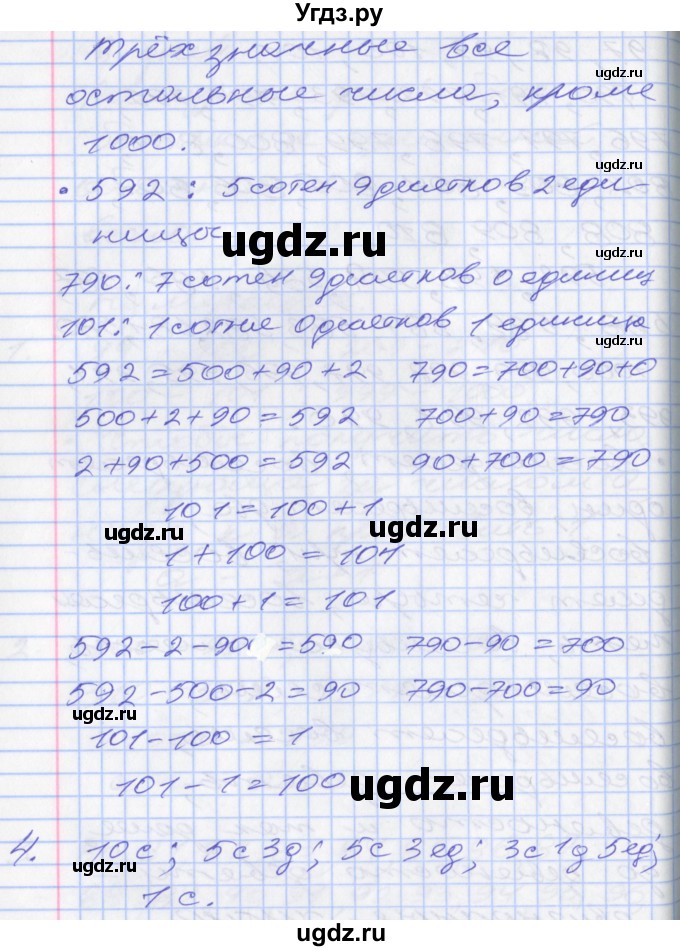 Угдз.ру
трёхзначные все
остальные числа, кроме
1000.
• 592 : 5 сотен 9 десятков 2 еди-
ницы
790: 7 сотен 9 десятков 0 единиц
101: 1 сотне 0 десятков 1 единица
592 = 500+90+2 790=700+90+0
500+2+90 = 592 700+90=790
2+90+500=592 90+700=790
101=100+1
1+100 = 101
100+1=101
592-2-90 =590 790-90=700
592-500-2=90 790-700=90
101-100 = 1
101-1=100
4. 10с; 5с 3д; 5с 3ед; 3с 1д 5ед;
1с.
ugdz.ru
ugdz.ru
ugdz.ru
ugdz.ru
ugdz.ru
ugdz.ru
ugdz.ru
ugdz.ru
ugdz.ru
ugdz.ru
ugdz.ru
ugdz.ru
ugdz.ru